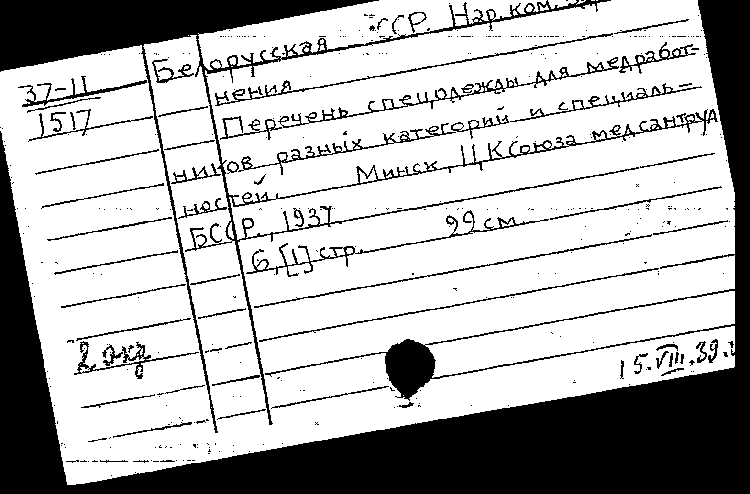 37-11
1517
Белорусская ССР. Нар. ком.
нения.
Перечень спецодежды для медработ-
ников разных категорий и специаль=
ностей. Минск, ЦК Союза медсантруд
БССР., 1937
6, [1] стр. 22 см.
2 экз
15.VIII.39.